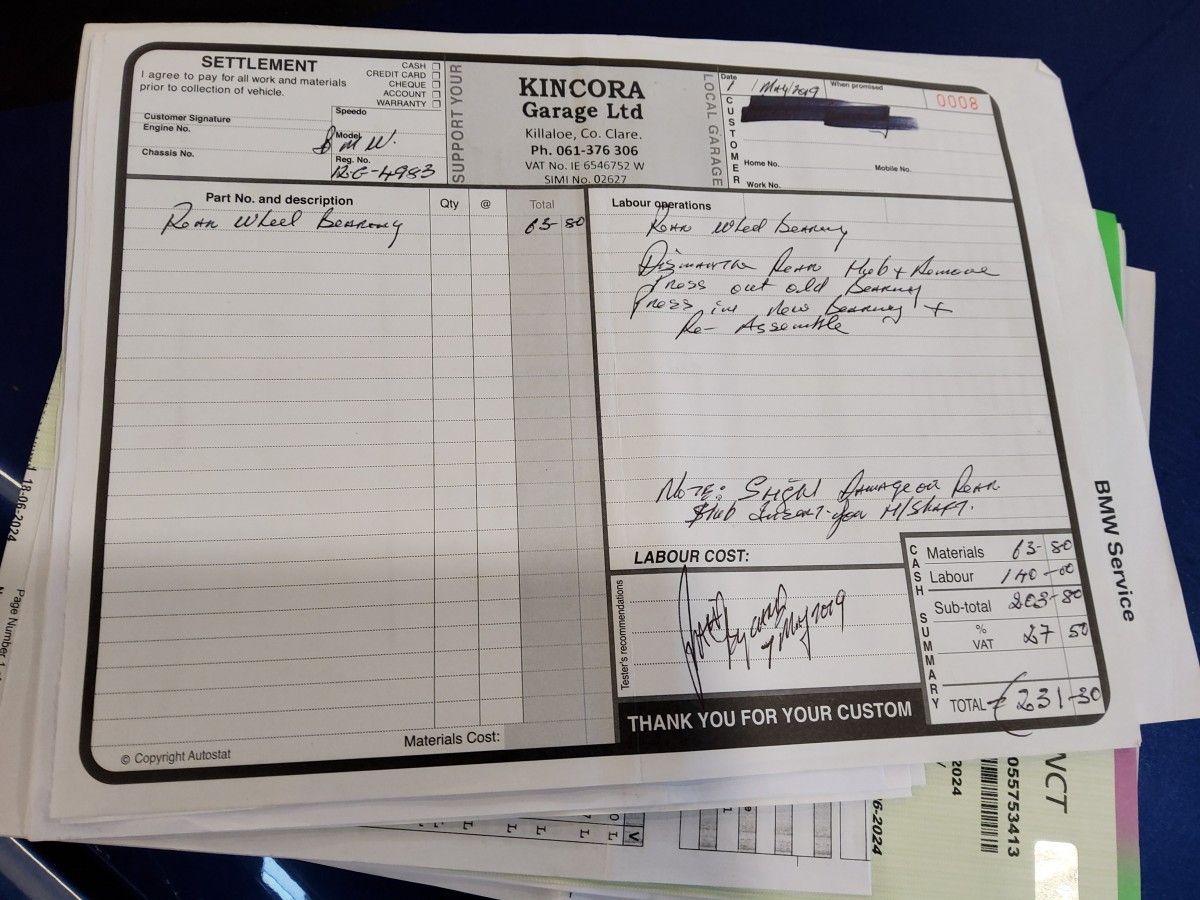 SETTLEMENT
I agree to pay for all work and materials
prior to collection of vehicle.
CASH
CREDIT CARD
CHEQUE
ACCOUNT
WARRANTY
Customer Signature
Engine No.
Chassis No.
Speedo
Model
BMW.
Reg. No.
SUPPORT YOUR
KINCORA
Garage Ltd
Killaloe, Co. Clare.
Ph. 061-376 306
VAT No. IE 6546752 W
SIMI No. 02627
LOCAL GARAGE
Date
1 May 2019
When promised
0008
CUSTOMER
Home No.
Mobile No.
Work No.
Part No. and description
Qty
@
Total
Rear Wheel Bearing 63-80
Labour operations
Rear Wheel Bearing
Dismantle Rear Hub + Remove
Press out old Bearing
Press in new Bearing +
Re-Assemble
NOTE: Damage on Rear
Hub
LABOUR COST:
Tester's recommendations
7 May 2019
CASH SUMMARY
Materials 63-80
Labour 140-00
Sub-total 203-80
% VAT 27 50
TOTAL € 231-30
Materials Cost:
THANK YOU FOR YOUR CUSTOM
© Copyright Autostat
BMW Service
18-06-2024
Page Number
NCT
055753413
2024
6-2024